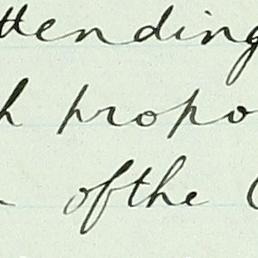 ttending
h propo
ofthe